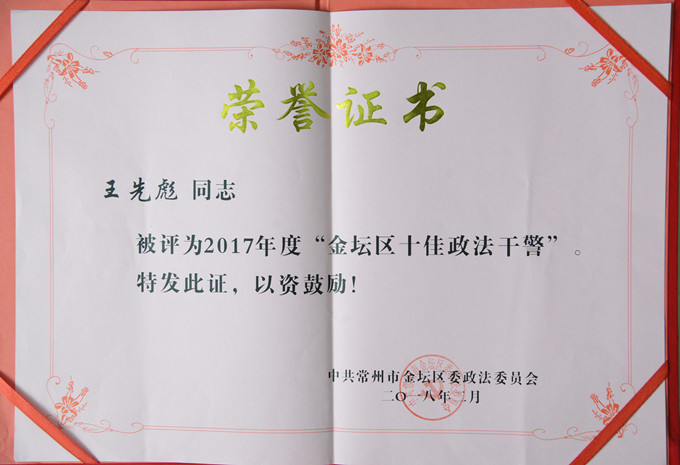 荣誉证书
王先彪 同志
被评为2017年度“金坛区十佳政法干警”。
特发此证，以资鼓励！
中共常州市金坛区委政法委员会
二〇一八年 月